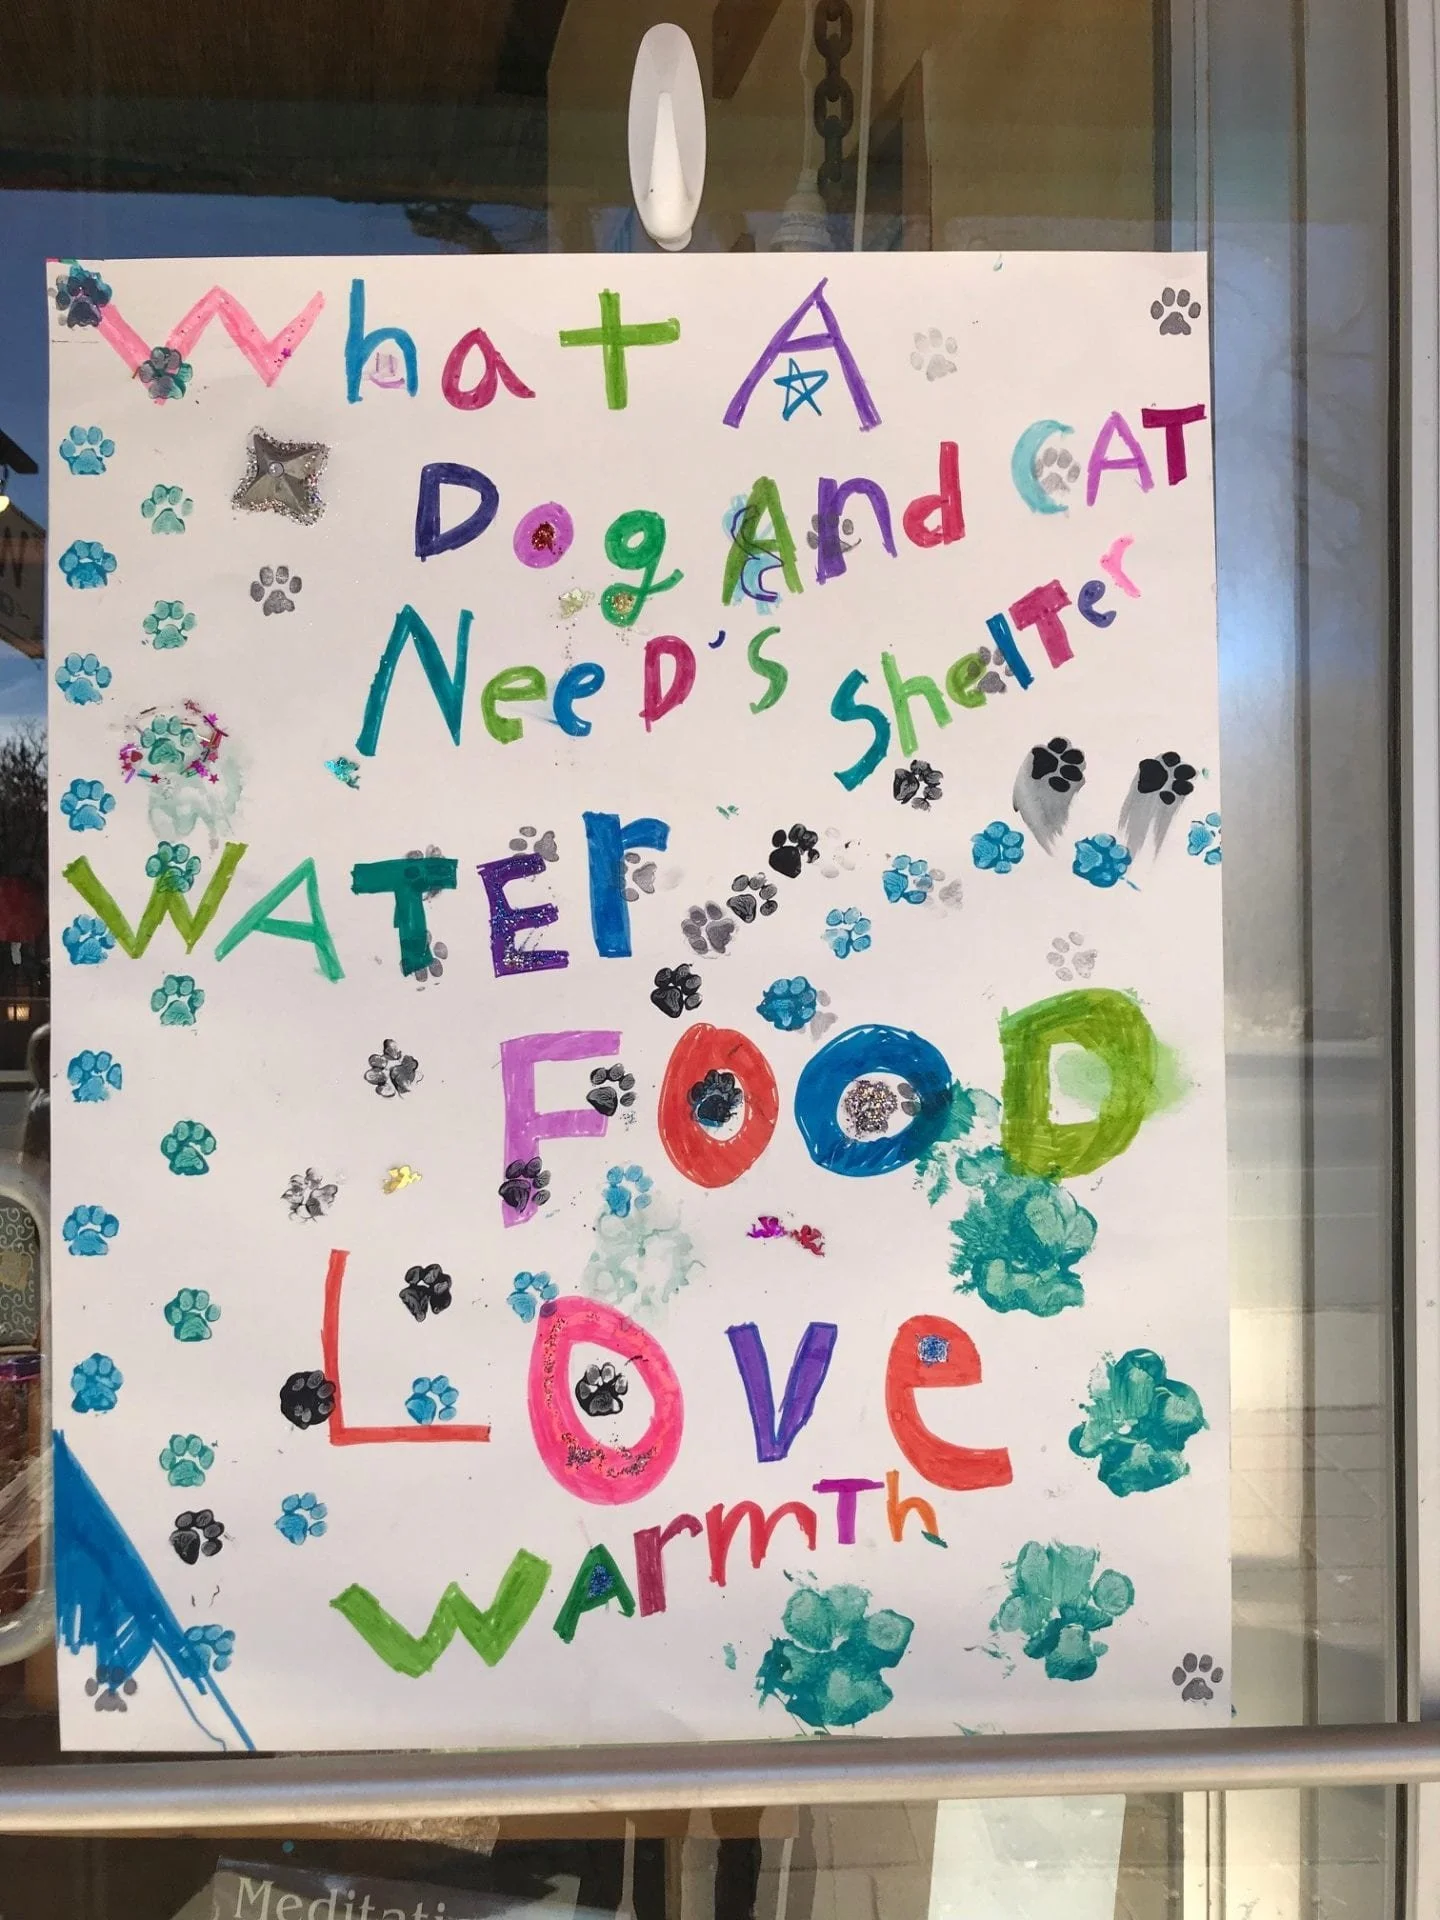 What A
Dog And CAT
NeeD's Shelter
WATEr
FOOD
Love
WArmTh
Meditati